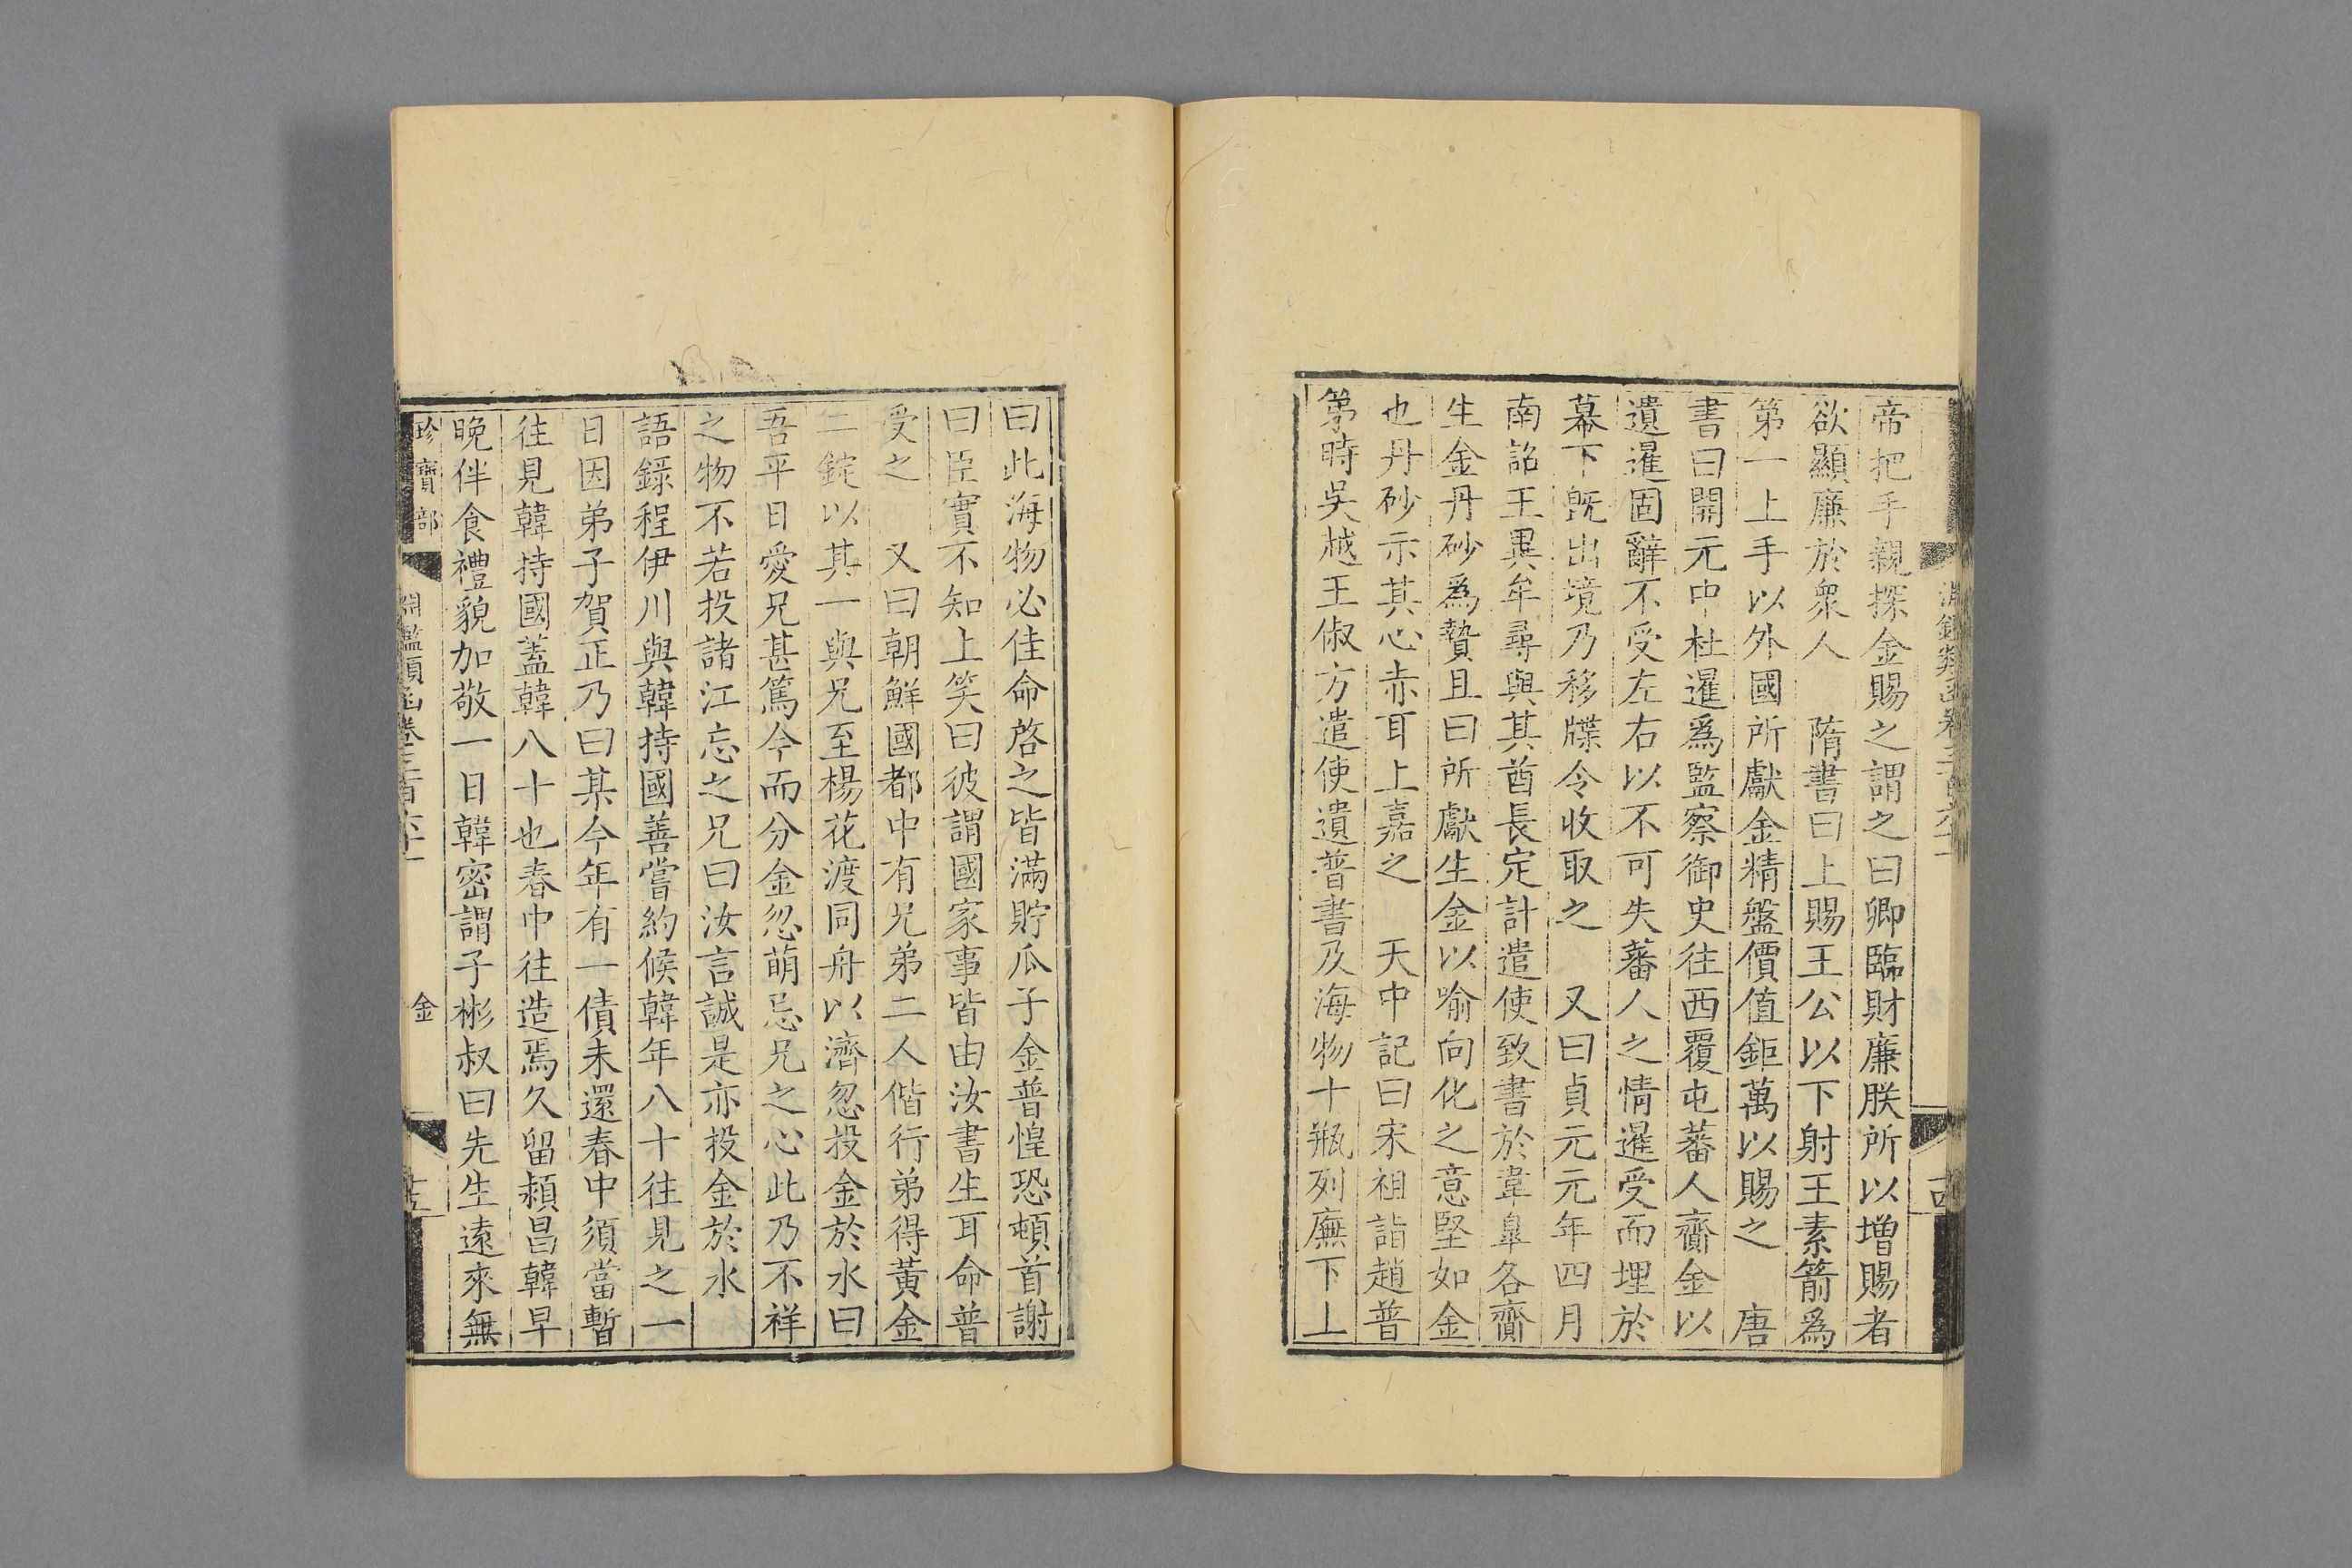 帝把手親探金賜之謂之曰卿臨財廉朕所以增賜者
欲顯廉於衆人　隋書曰上賜王公以下射王素箭爲
第一上手以外國所獻金精盤價值鉅萬以賜之　唐
書曰開元中杜暹爲監察御史往西覆屯蕃人齎金以
遺暹固辭不受左右以不可失蕃人之情暹受而埋於
幕下既出境乃移牒令收取之　又曰貞元元年四月
南詔王異牟尋與其酋長定計遣使致書於韋臯各齎
生金丹砂爲贄且曰所獻生金以喻向化之意堅如金
也丹砂示其心赤耳上嘉之　天中記曰宋祖詣趙普
第時吳越王俶方遣使遺普書及海物十瓶列廡下上
曰此海物必佳命啓之皆滿貯瓜子金普惶恐頓首謝
曰臣實不知上笑曰彼謂國家事皆由汝書生耳命普
受之　又曰朝鮮國都中有兄弟二人偕行弟得黃金
二錠以其一與兄至楊花渡同舟以濟忽投金於水曰
吾平日愛兄甚篤今而分金忽萌忌兄之心此乃不祥
之物不若投諸江忘之兄曰汝言誠是亦投金於水
語錄程伊川與韓持國善嘗約候韓年八十往見之一
日因弟子賀正乃曰某今年有一債未還春中須當暫
往見韓持國蓋韓八十也春中往造焉久留潁昌韓早
晚伴食禮貌加敬一日韓密謂子彬叔曰先生遠來無
珍寶部　淵鑑類函卷三百六十一　金　十五